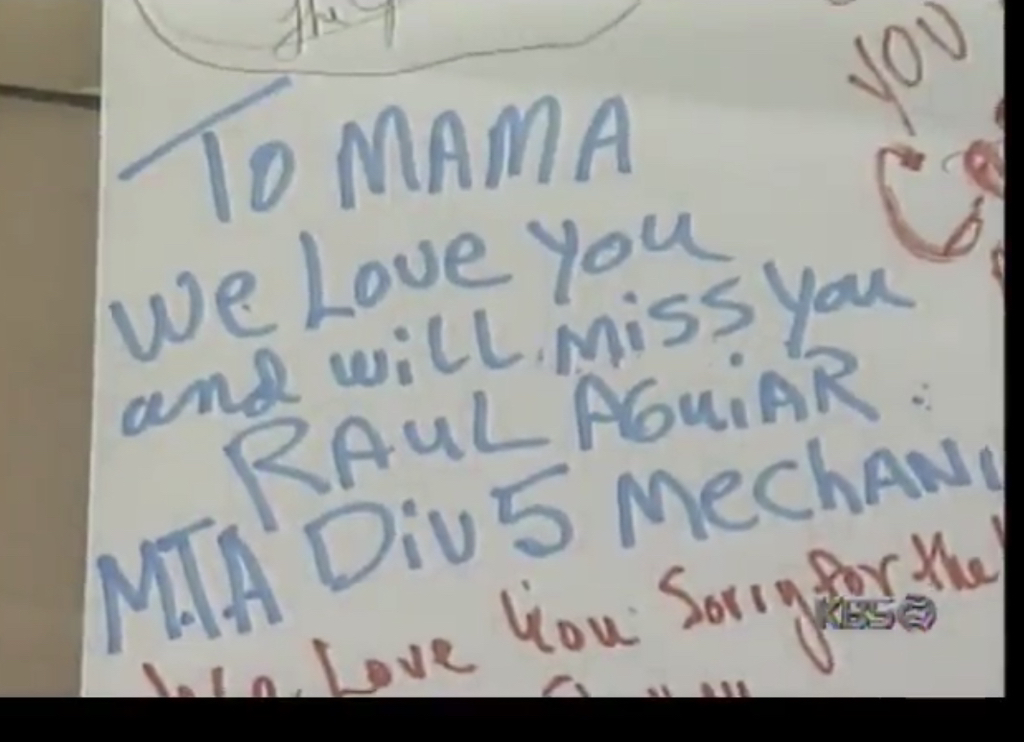 The
YOU
TO MAMA
We Love you
and will miss you
RAUL AGUIAR
M.T.A Div 5 MeChANi
We Love You Sorry for the
KBS2